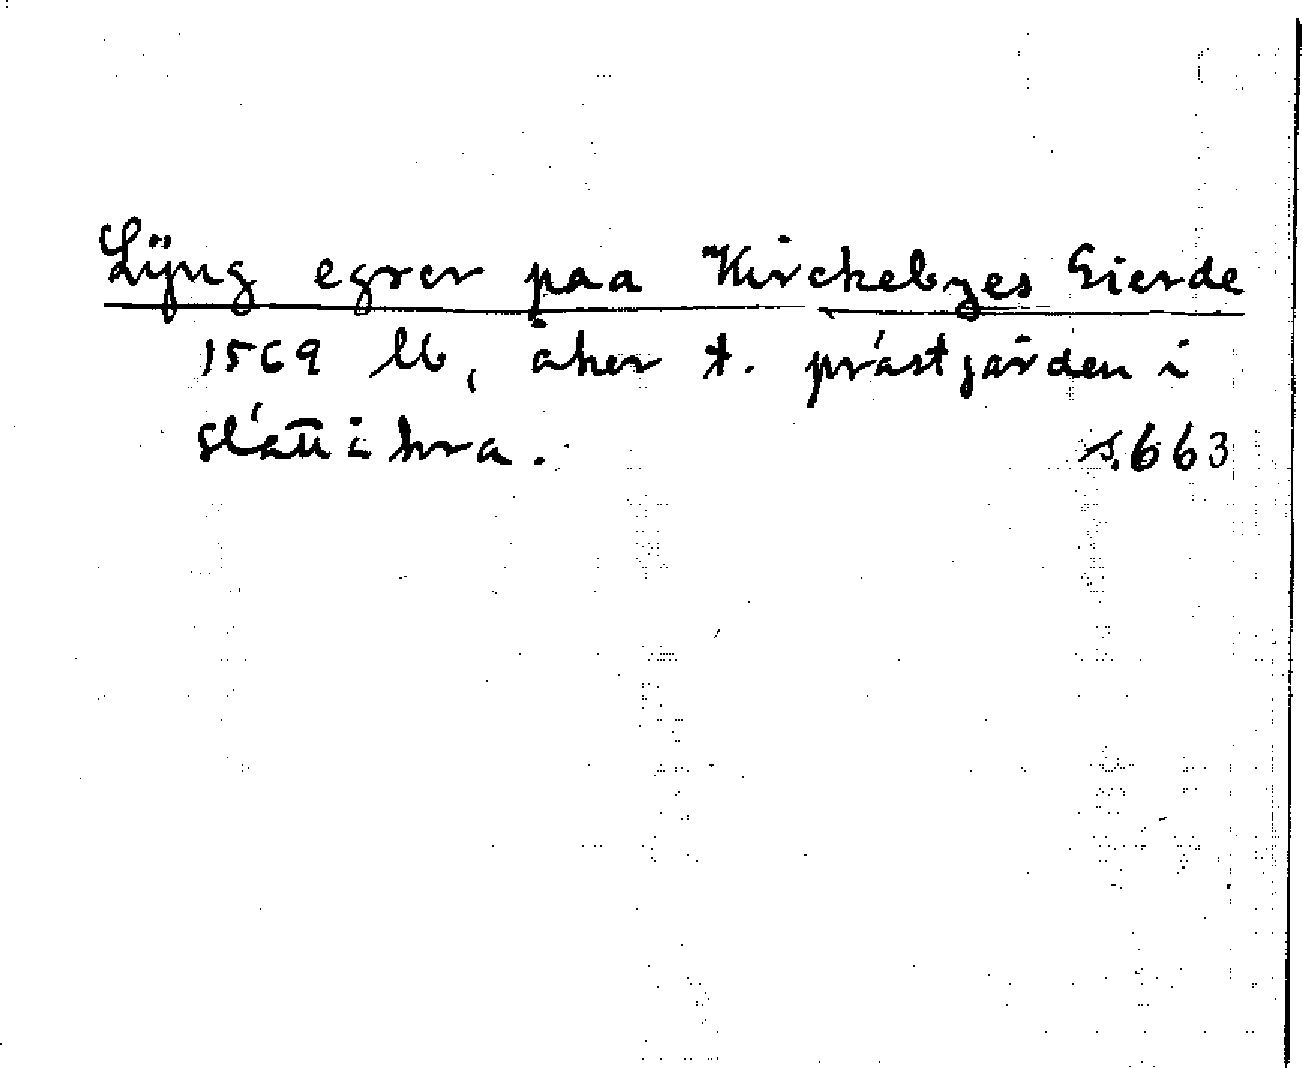 Lÿng egrer paa Kirckebyes Eierde
1569 lb, åker t. prästgården i
Slätthra. s. 663